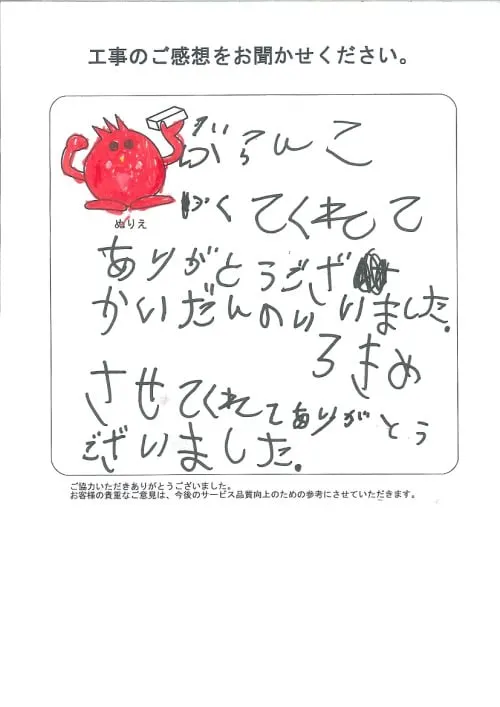 工事のご感想をお聞かせください。
ぶらんこ
ぬりえ
てくれて
ありがとうござ
かいだんのい いました.
ろきめ
させてくれてありがとう
ございました.
ご協力いただきありがとうございました。
お客様の貴重なご意見は、今後のサービス品質向上のための参考にさせていただきます。